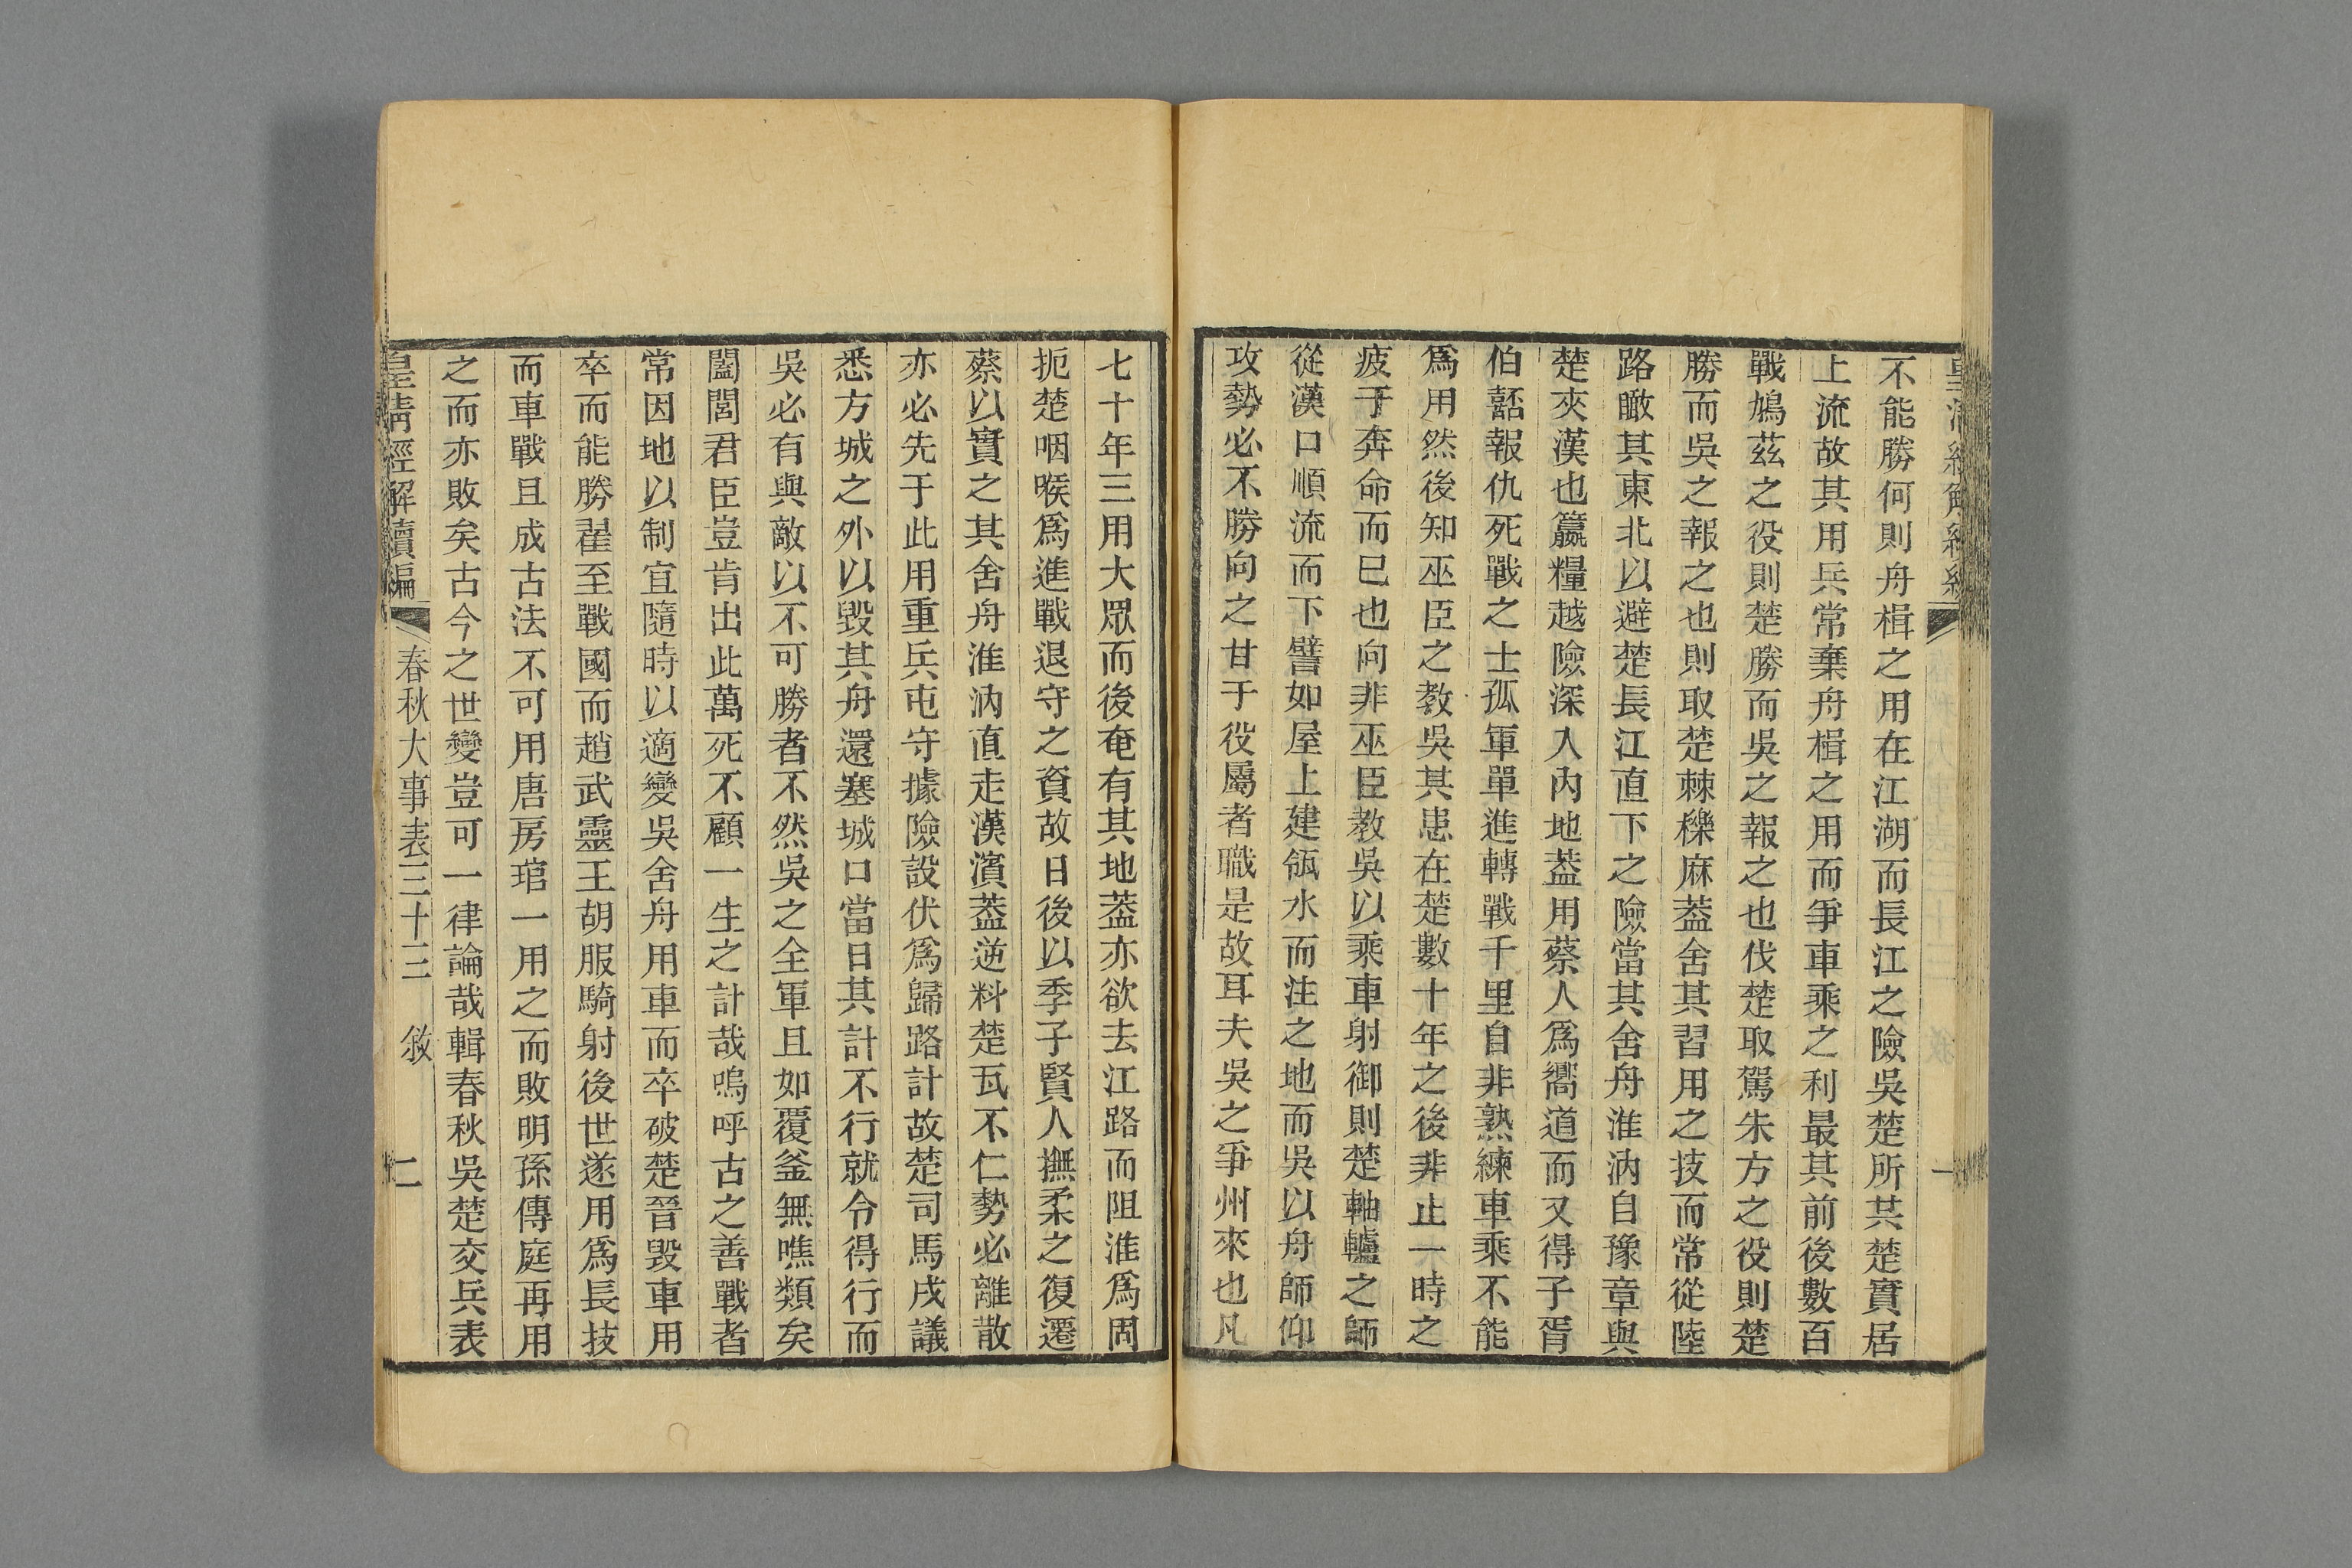 不能勝何則舟楫之用在江湖而長江之險吳楚所共楚實居
上流故其用兵常棄舟楫之用而爭車乘之利最其前後數百
戰鳩茲之役則楚勝而吳之報之也伐楚取駕朱方之役則楚
勝而吳之報之也則取楚棘櫟麻葢舍其習用之技而常從陸
路瞰其東北以避楚長江直下之險當其舍舟淮汭自豫章與
楚夾漢也籯糧越險深入內地葢用蔡人爲嚮道而又得子胥
伯嚭報仇死戰之士孤軍單進轉戰千里自非熟練車乘不能
爲用然後知巫臣之教吳其患在楚數十年之後非止一時之
疲于奔命而巳也向非巫臣教吳以乘車射御則楚軸轤之師
從漢口順流而下譬如屋上建瓴水而注之地而吳以舟師仰
攻勢必不勝向之甘于役屬者職是故耳夫吳之爭州來也凡
七十年三用大眾而後奄有其地葢亦欲去江路而阻淮爲固
扼楚咽喉爲進戰退守之資故日後以季子賢人撫柔之復遷
蔡以實之其舍舟淮汭直走漢濱葢逆料楚瓦不仁勢必離散
亦必先于此用重兵屯守據險設伏爲歸路計故楚司馬戌議
悉方城之外以毀其舟還塞城口當日其計不行就令得行而
吳必有與敵以不可勝者不然吳之全軍且如覆釜無噍類矣
闔閭君臣豈肯出此萬死不顧一生之計哉嗚呼古之善戰者
常因地以制宜隨時以適變吳舍舟用車而卒破楚晉毀車用
卒而能勝翟至戰國而趙武靈王胡服騎射後世遂用爲長技
而車戰且成古法不可用唐房琯一用之而敗明孫傳庭再用
之而亦敗矣古今之世變豈可一律論哉輯春秋吳楚交兵表
皇淸經解續編 春秋大事表三十三 敘 二